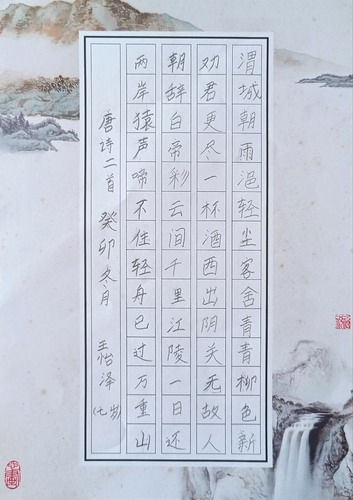 渭城朝雨浥轻尘客舍青青柳色新
劝君更尽一杯酒西出阴关无故人
朝辞白帝彩云间千里江陵一日还
两岸猿声啼不住轻舟已过万重山
唐诗二首 癸卯冬月 王怡泽(七岁)